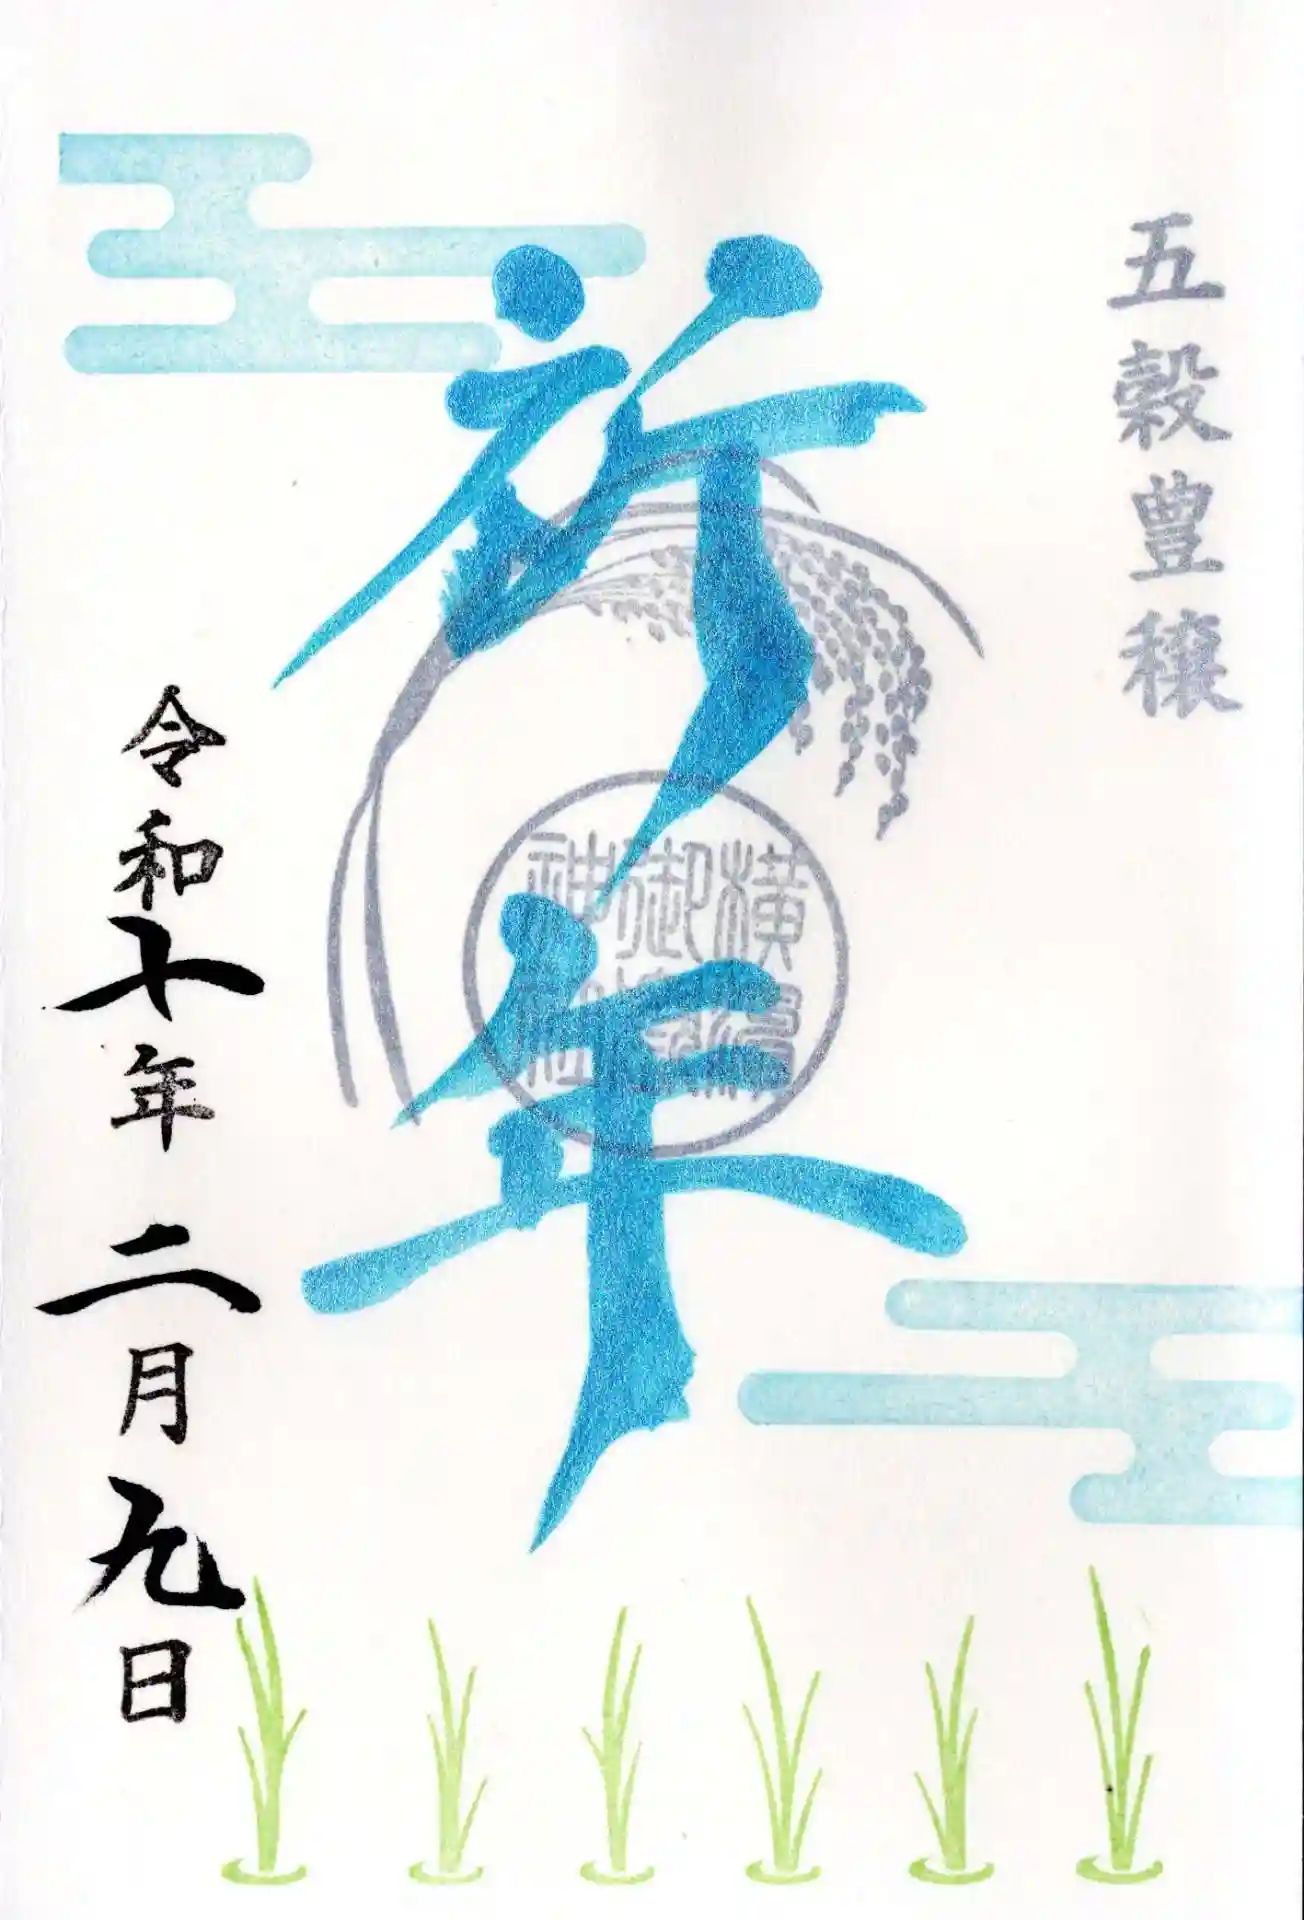 五穀豊穣
祈年
横濱
御嶽
神社
令和七年二月九日